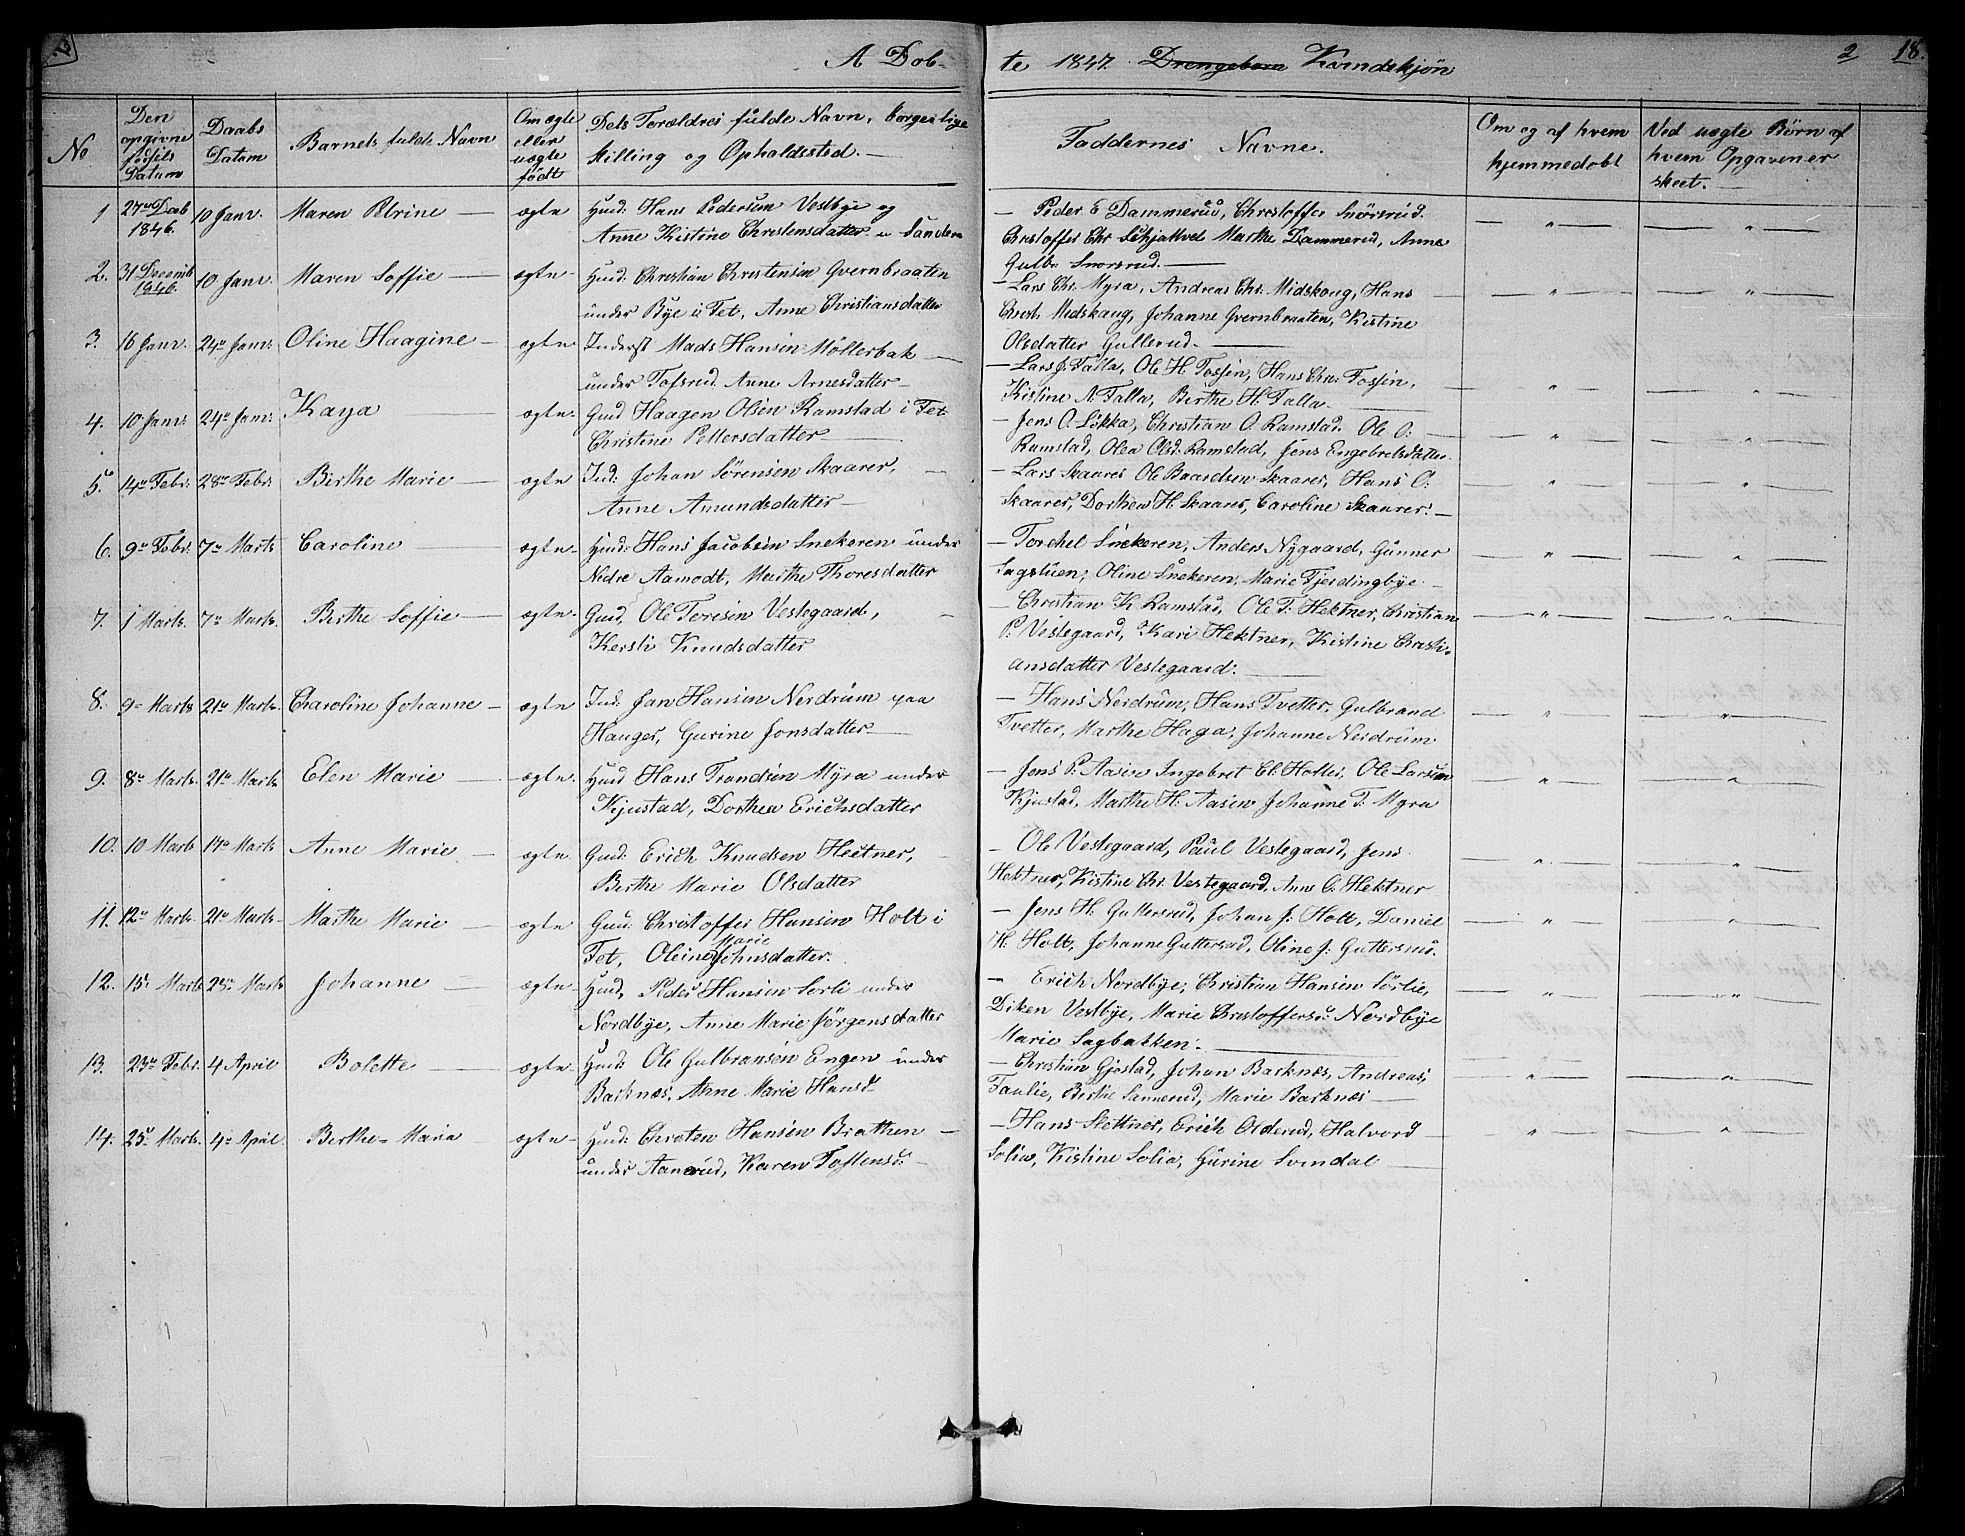 A Døb-
te 1847. Drengebørn Kvindekjøn 2 18.
No
Den opgivne føfsels Datum
Daabs Datum
Barnets fulde Navn
Om ægte eller uægte født
Dets Forældres fulde Navn, borgerlige
Stilling og Opholdsstsd. —
Faddernes Navne.
Om og af hvem
hjemmedøbt
Ved uægte Børn af
hvem Opgavener
skeet. —
1 27de Decb 1846. 10 Janv. Maren Petrine — ægte Huusm: Hans Pedersen Vestbye og
Anne Kistine Christensdatter
— Peder E Dammerud, Christoffer Snorsrud.
Christoffer Chr Schjatvet Marthe Dammerud, Anne
Gulbr. Snorsrud. —
2. 31 Decemb 1846. 10 Janv. Maren Soffie — ægte Huusm: Christian Christensen Qvernbraaten
under Bye i Fet, Anne Christiansdatter
— Lars Chr. Myra, Andreas Chr: Midskoug, Hans
Christ. Midskaug, Johanne Qvernbraaten, Kistine
Olsdatter Gullerud. —
3. 16 Janv. 24de Janv. Oline Haagine — ægte Inderst Mads Hansen Møllerbak —
under Tofsrud Anne Arnesdatter —
— Lars J. Falla, Ole H. Fossen, Hans Chr. Fossen,
Kistine A. Falla, Birthe H. Falla. —
4. 10 Janv. 24de Janv. Kaya — ægte. Gmd Haagen Olsen Ramstad i Fet
Christine Pettersdatter —
— Jens O. Løkka, Christian O. Ramstad. Ole O: —
Ramstad, Olea Olsd. Ramstad, Jens Engebretsdatter.
5. 14de Febr. 28de Febr. Birthe Marie — ægte Ind: Johan Sørensen Skaarer, —
Anne Amundsdatter —
— Lars Skaarer Ole Baardsen Skaarer, Hans O:
Skaarer, Dorthea H. Skaarer, Caroline Skaarer. —
6. 9de Febr. 7de Marts Caroline — ægte. Huusm: Hans Jacobsen Snekeren under
Nedre Aamodt, Marthe Thoresdatter
— Torchel Snekeren, Anders Nygaard, Gunner
Sagstuen, Oline Snekeren, Marie Fjerdingbye —
7. 1 Marts. 7de Marts. Birthe Soffie — ægte. Gmd. Ole Toresen Vestegaard, —
Kersti Knudsdatter
— Christian K Ramstad, Ole T. Hektner, Christian
P. Vestegaard, Kari Hektner, Kistine Christi-
ansdatter Vestegaard. —
8. 9de Marts 21de Marts. Charoline Johanne — ægte Ind. Jan Hansen Nerdrum paa
Hauger, Gurine Jonsdatter —
— Hans Nerdrum, Hans Tvetter, Gulbrand
Tvetter, Marthe Haga, Johanne Nerdrum
9. 8de Marts. 21de Marts Elen Marie — ægte. Huusm Hans Trondsen Myra under
Kjustad, Dorthea Erichsdatter
— Jens P. Aasen Ingebret El. Holter, Ole Larsen
Kjustad, Marthe H. Aasen Johanne T. Myra
10. 10 Marts 14de Marts Anne Marie — ægte Gmd. Erich Knudsen Hektner, —
Birthe Marie Olsdatter
— Ole Vestegaard, Paul Vestegaard, Jens
Hektner, Kistine Chr. Vestegaard. Anne O. Hektner
11. 12de Marts. 21de Marts — Marthe Marie — ægte Gmd. Christoffer Hansen Holt i
Fet, Oleine Marie Johnsdatter.
— Jens H. Guttersrud, Johan J. Holt, Daniel
H. Holt, Johanne Guttersrud, Oline J. Guttersrud.
12. 15. Marts 28de Marts Johanne — ægte — Huusm, Peder Hansen Sorli under
Nordbye, Anne Marie Jørgensdatter
— Erich Nordbye, Christian Hansen Sørlie,
Diken Vestbye, Marie Christoffersd. Nordbye
Marie Sagbakken. —
13. 23de Febr. 4 April Bolette — ægte Huusm: Ole Gulbransen Engen under
Barknæs. Anne Marie Hansd
— Christian Gjøstad, Johan Barknæs, Andreas,
Faulie, Birtie Sannerud, Marie Barknæs —
14. 25. Marts. 4de April Birthe Maria — ægte — Huusm: Christen Hansen Brathen —
under Aanerud, Karen Tostensd. —
— Hans Slettner, Erich Olderud, Halvord —
Solia, Kistine Solia, Gurine Svendal —